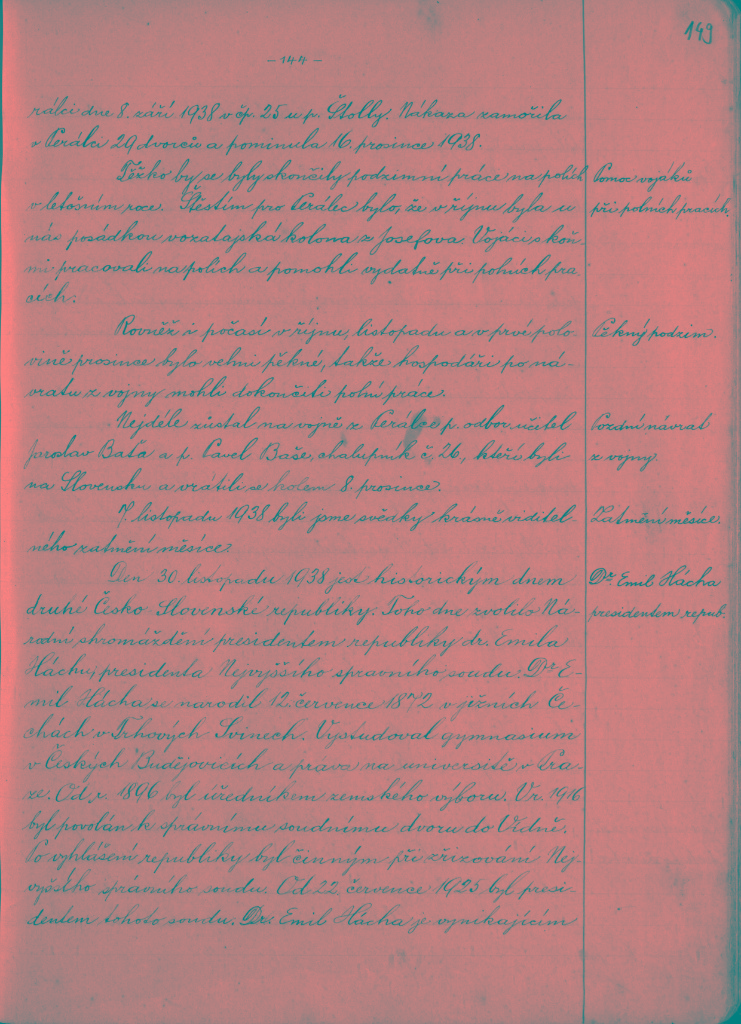 149
- 144 -
rálci dne 8. září 1938 v čp. 25 u p. Štolly. Nákaza zamořila
v Perálci 29 dvorců a pominula 16. prosince 1938.
Těžko by se byly skončily podzimní práce na polích
Pomoc vojáků
v letošním roce. Štěstím pro Perálec bylo, že v říjnu byla u
při polních pracích.
nás posádkou vozatajská kolona z Josefova. Vojáci s koň-
mi pracovali na polích a pomohli vydatně při polních pra
cích.
Rovněž i počasí v říjnu, listopadu a v prvé polo-
Pěkný podzim.
vině prosince bylo velmi pěkné, takže hospodáři po ná-
vratu z vojny mohli dokončiti polní práce.
Nejdéle zůstal na vojně z Perálce p. odbor. učitel
Pozdní návrat
Jaroslav Baťa a p. Pavel Baše, chalupník č. 26, kteří byli
z vojny.
na Slovensku a vrátili se kolem 8. prosince.
7. listopadu 1938 byli jsme svědky krásně viditel-
Zatmění měsíce.
ného zatmění měsíce.
Den 30. listopadu 1938 jest historickým dnem
Dr. Emil Hácha
druhé Česko Slovenské republiky. Toho dne zvolilo Ná-
presidentem repub.
rodní shromáždění presidentem republiky dr. Emila
Háchu, presidenta Nejvyššího správního soudu. Dr. E-
mil Hácha se narodil 12. července 1872 v jižních Če-
chách v Trhových Svinech. Vystudoval gymnasium
v Českých Budějovicích a práva na universitě v Pra-
ze. Od r. 1896 byl úředníkem zemského výboru. V r. 1916
byl povolán k správnímu soudnímu dvoru do Vídně.
Po vyhlášení republiky byl činným při zřizování Nej-
vyššího správního soudu. Od 22. července 1925 byl presi-
dentem tohoto soudu. Dr. Emil Hácha je vynikajícím